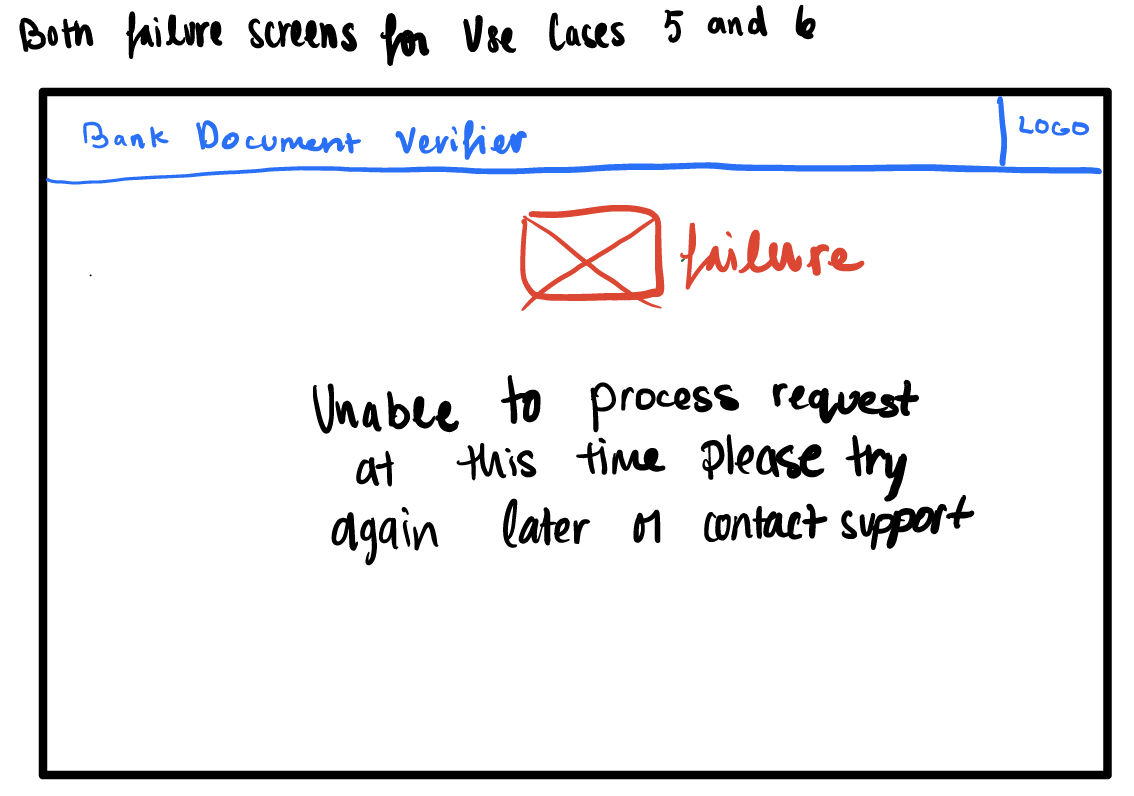 Both failure screens for Use Cases 5 and 6
Bank Document Verifier
LOGO
failure
Unable to process request
at this time please try
again later or contact support